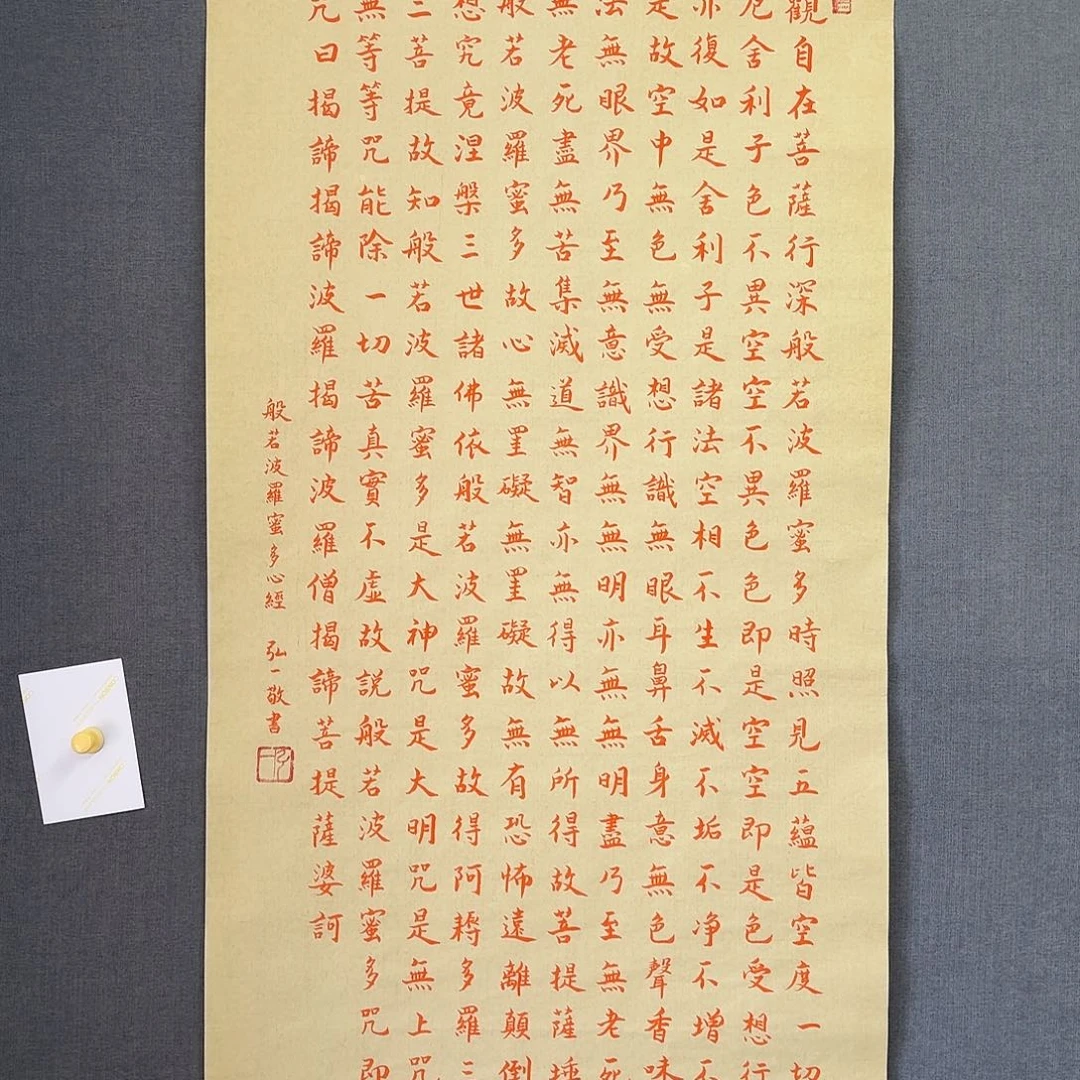 觀自在菩薩行深般若波羅蜜多時照見五蘊皆空度一切
厄舍利子色不異空空不異色色即是空空即是色受想行
亦復如是舍利子是諸法空相不生不滅不垢不净不增不
是故空中無色無受想行識無眼耳鼻舌身意無色聲香味
法無眼界乃至無意識界無無明亦無無明盡乃至無老死
無老死盡無苦集滅道無智亦無得以無所得故菩提薩埵
般若波羅蜜多故心無罣礙無罣礙故無有恐怖遠離顛倒
想究竟涅槃三世諸佛依般若波羅蜜多故得阿耨多羅三
三菩提故知般若波羅蜜多是大神咒是大明咒是無上咒
無等等咒能除一切苦真實不虛故説般若波羅蜜多咒即
咒曰揭諦揭諦波羅揭諦波羅僧揭諦菩提薩婆訶
般若波羅蜜多心經 弘一敬書